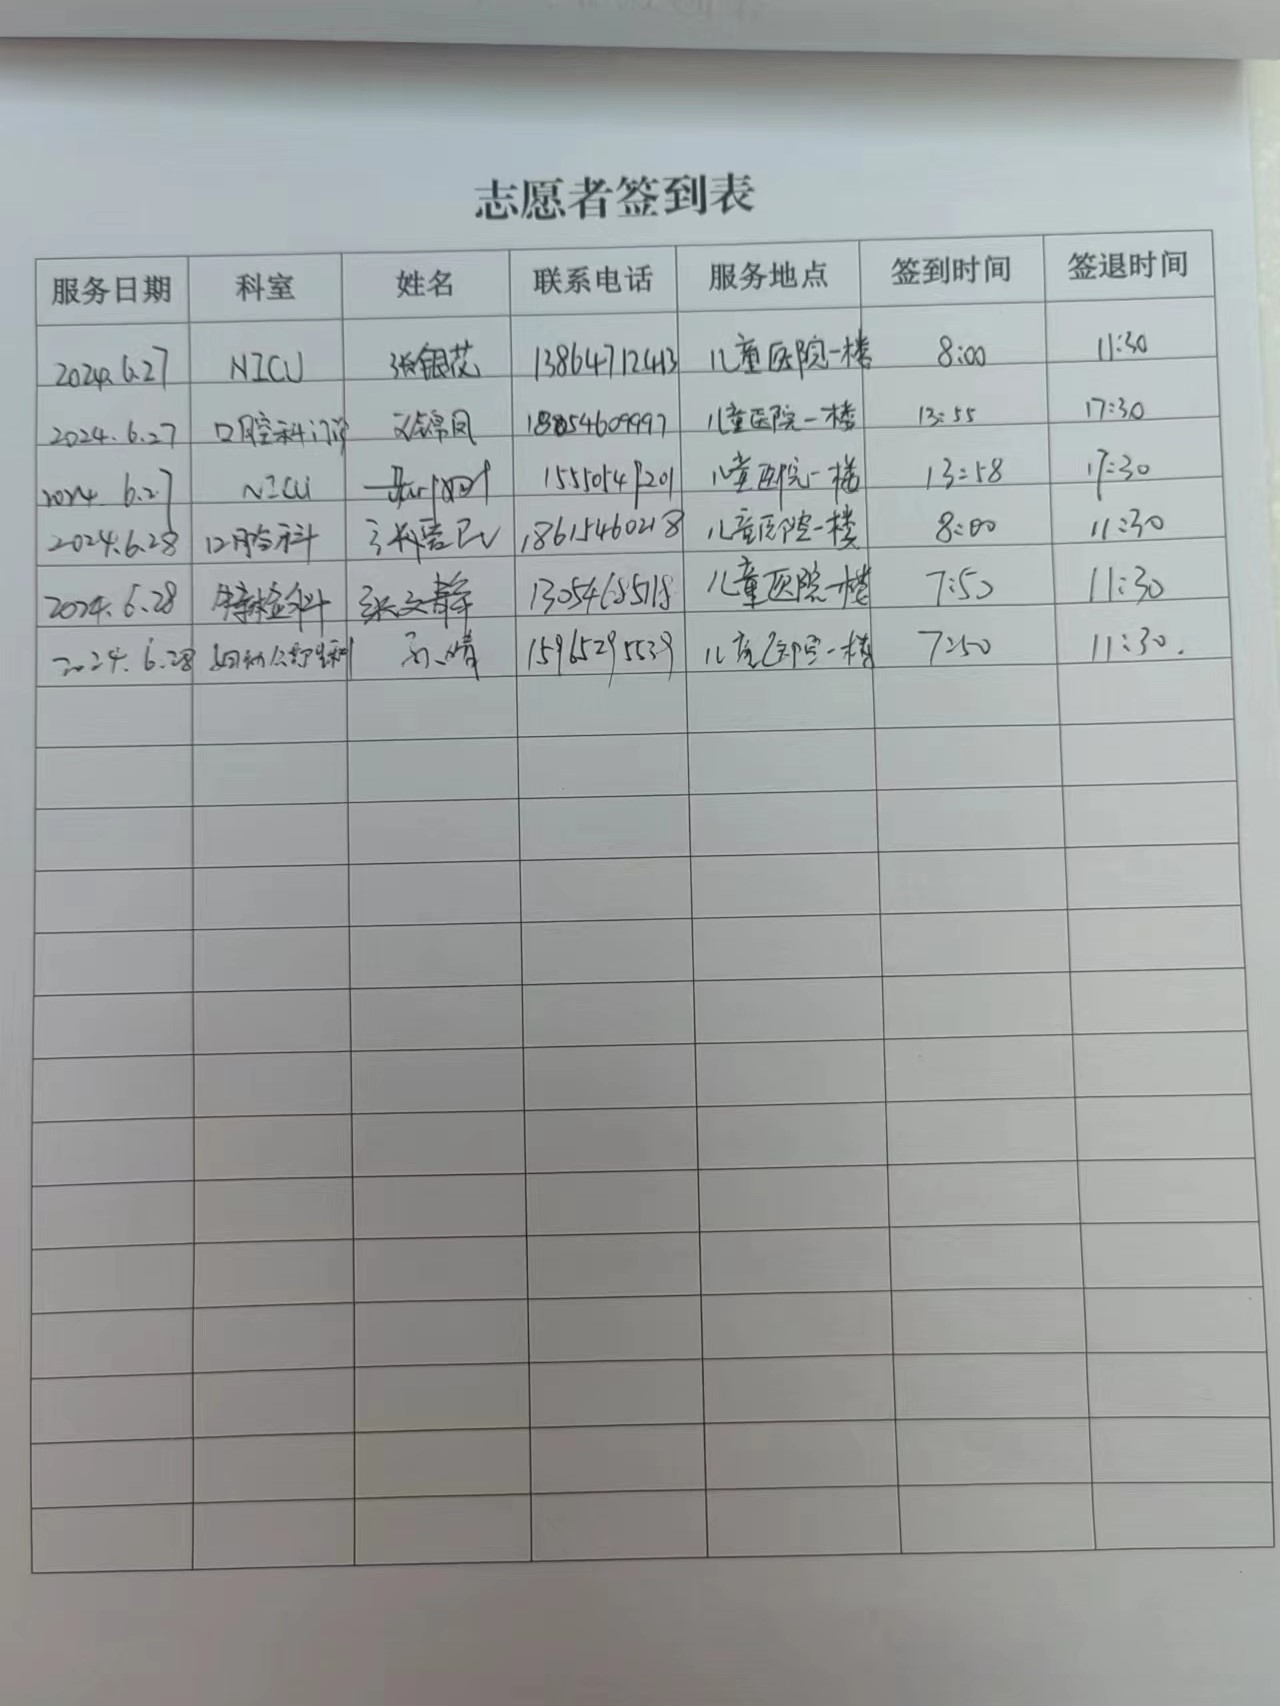 志愿者签到表
服务日期 科室 姓名 联系电话 服务地点 签到时间 签退时间
2024.6.27 NICU 张银花 13864712413 儿童医院一楼 8:00 11:30
2024.6.27 口腔科门诊 刘锦凤 18854609997 儿童医院一楼 13:55 17:30
2024.6.27 NICU 儿童医院一楼 13:58 17:30
2024.6.28 口腔科 18615460218 儿童医院一楼 8:00 11:30
2024.6.28 特检科 张文静 13054685118 儿童医院一楼 7:50 11:30
2024.6.28 15965295539 儿童医院一楼 7:50 11:30.